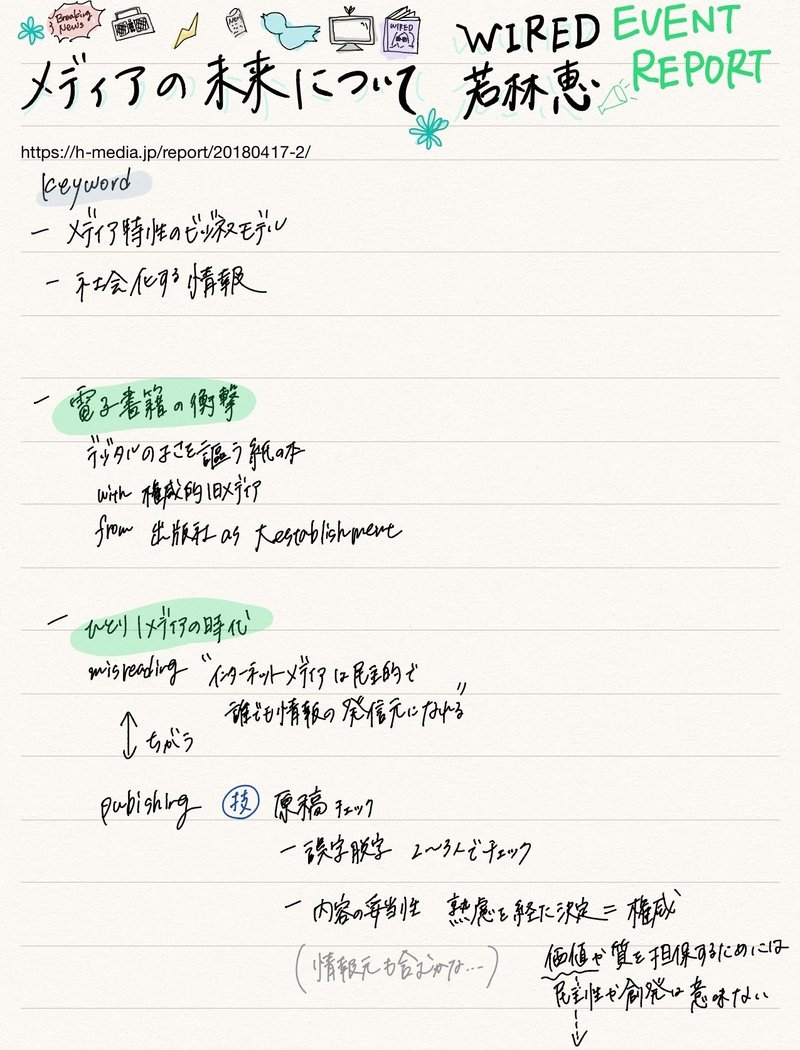 Breaking News
NEWS
メディアの未来について WIRED 若林恵
EVENT REPORT
https://h-media.jp/report/20180417-2/
keyword
ー メディア特性のビジネスモデル
ー 社会化する情報
ー 電子書籍の衝撃
デジタルのよさを謳う紙の本
with 権威的旧メディア
from 出版社 as 大establishment
ー ひとり1メディアの時代
misreading “インターネットメディアは民主的で
誰でも情報の発信元になれる”
↕ ちがう
pubishing 技 原稿チェック
ー 誤字脱字 2〜3人でチェック
ー 内容の妥当性 熟慮を経た決定 = 権威
(情報元も含むかな…)
価値や質を担保するためには
民主性や創発は意味ない